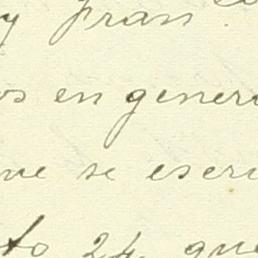 y Fran
os en genera
que se escri
to 24 que